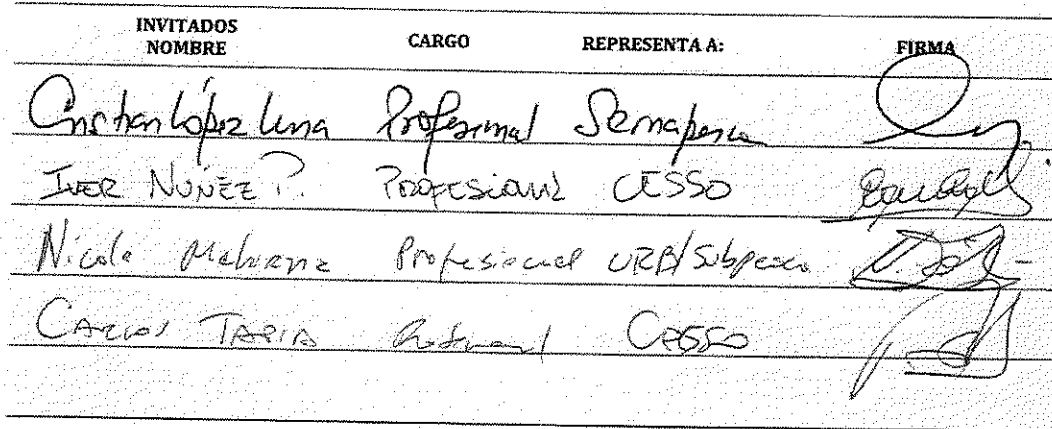 INVITADOS
NOMBRE CARGO REPRESENTA A: FIRMA
Cristian López Profesional Sernapesca
IVER NUÑEZ P. PROFESIONAL CESSO
Nicole Profesional URB/Subpesca
CARLOS TAPIA CESSO